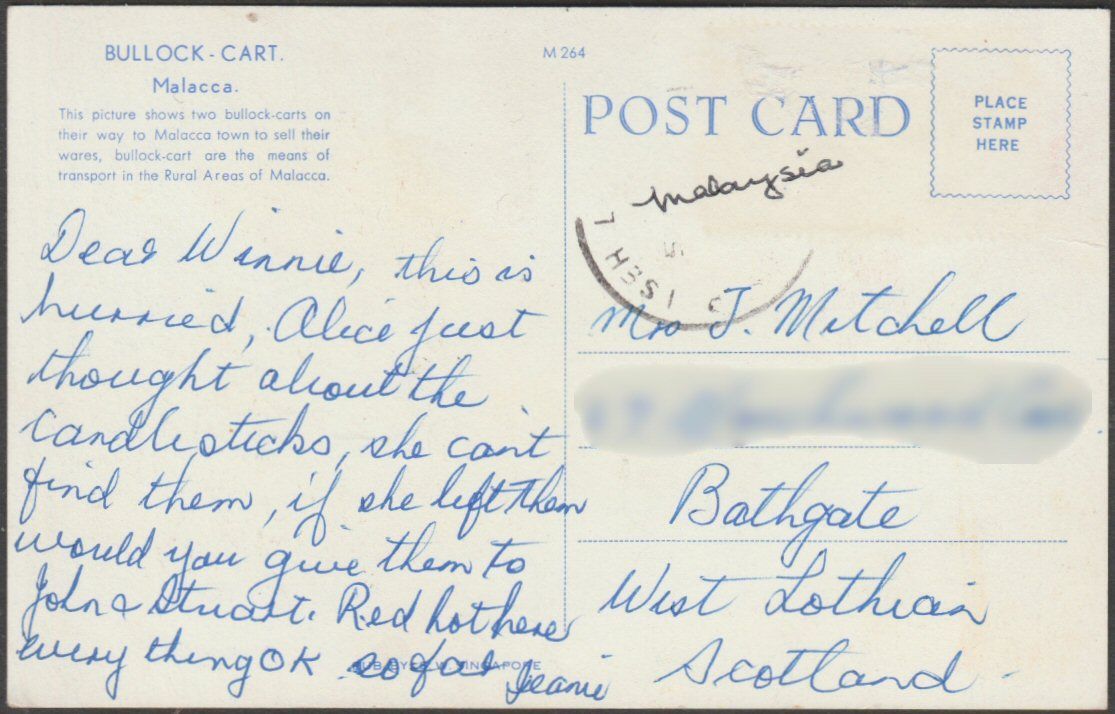 BULLOCK - CART.
Malacca.
This picture shows two bullock-carts on
their way to Malacca town to sell their
wares, bullock-cart are the means of
transport in the Rural Areas of Malacca.
Dear Winnie, this is
hurried, Alice just
thought about the
candlesticks, she can't
find them, if she left them
would you give them to
John & Stuart. Red hot here
every thing OK so far
Jeanie
M 264
POST CARD
PLACE
STAMP
HERE
Malaysia
Mrs J. Mitchell
Bathgate
West Lothian
Scotland
SINGAPORE